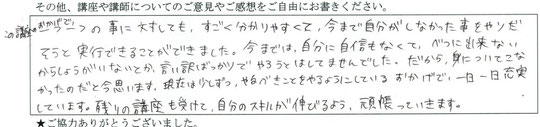 その他、講座や講師についてのご意見やご感想をご自由にお書きください。
この講座のおかげで、一つの事に大しても、すごく分かりやすくて、今まで自分がしなかった事をやりだ
そうと実行できることができました。今までは、自分に自信もなくて、べつに出来ない
からしょうがいないとか、言い訳ばっかりでやろうとはしてませんでした。だから、身についてこな
かったのだと今思います。現在は少しずつ、やるべきことをやるようにしている おかげで、一日一日充実
しています。残りの講座も受けて、自分のスキルが伸びるよう、頑張っていきます。
★ご協力ありがとうございました。